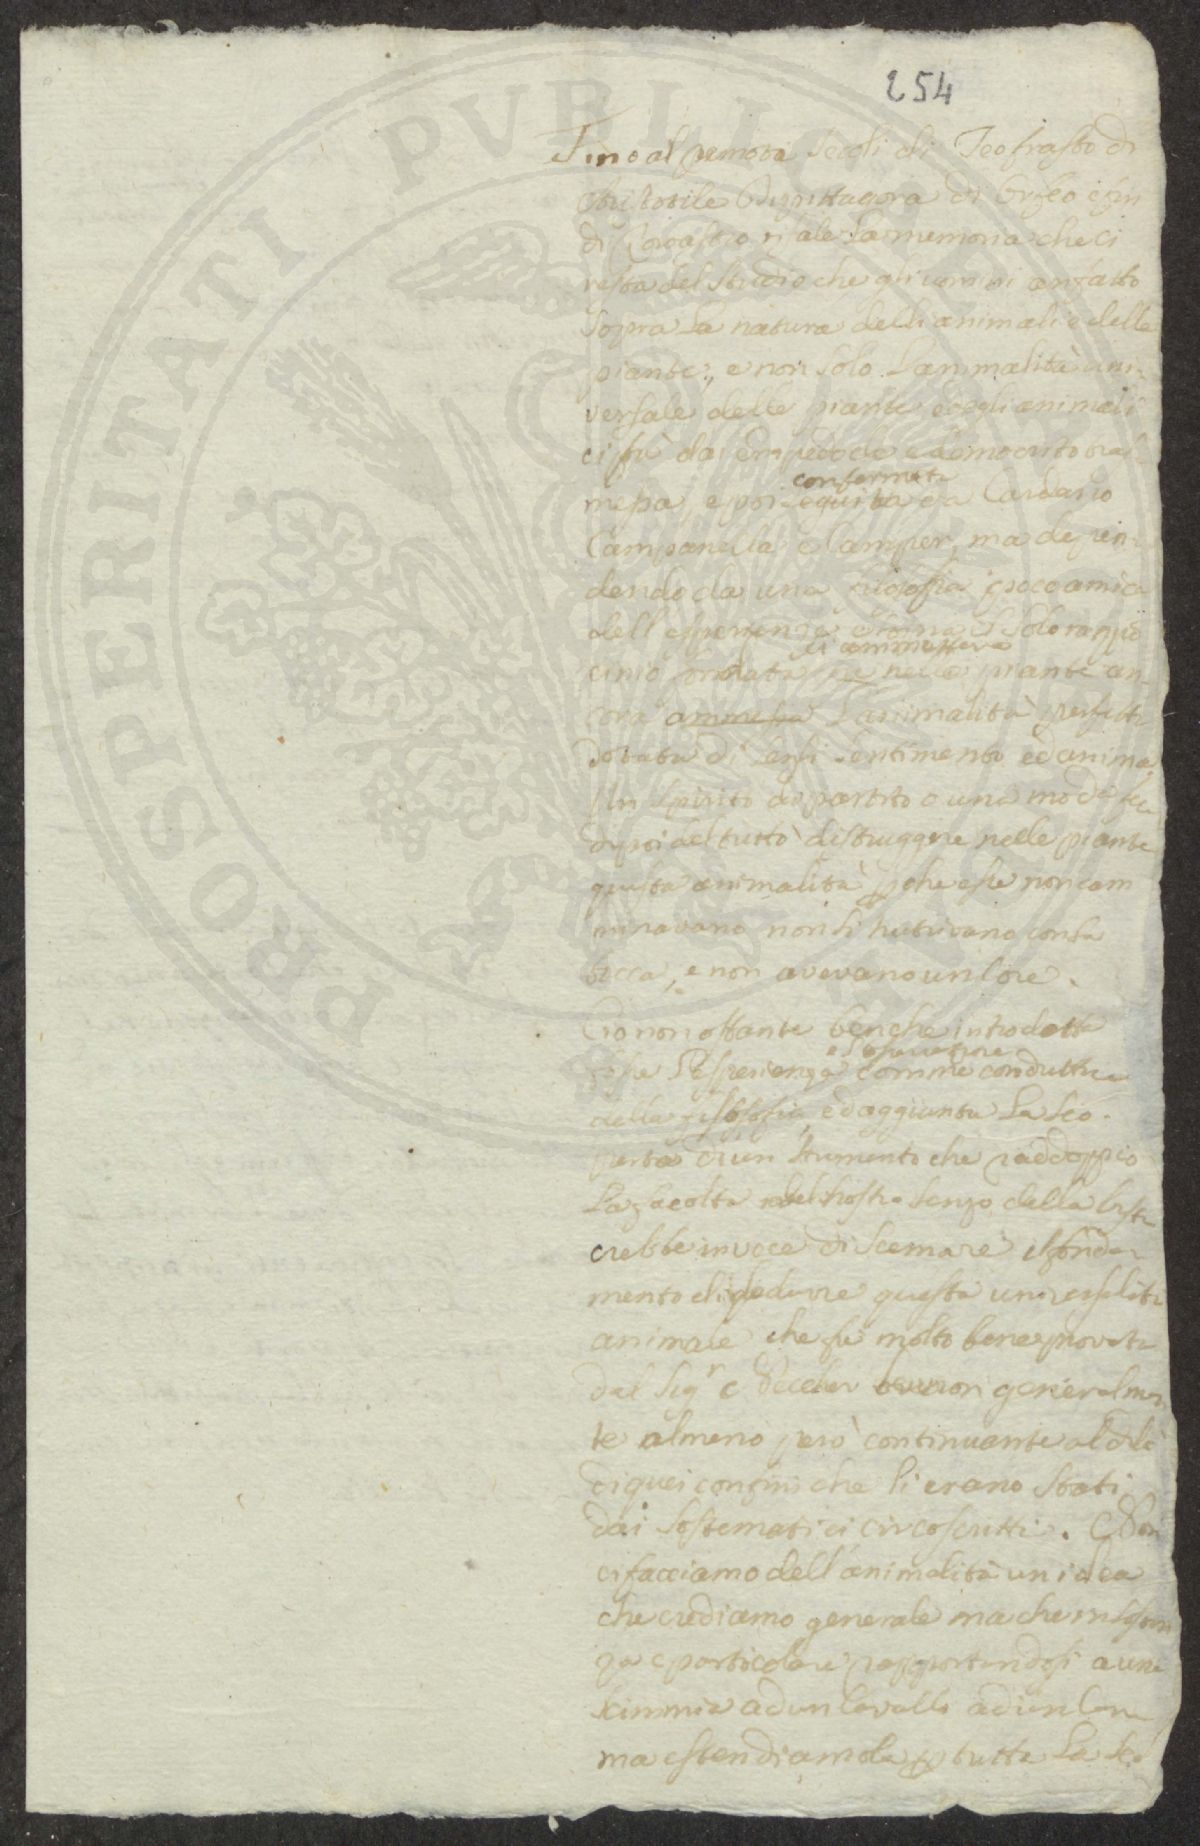 254
Fino al remoti secoli di Teofrasto di
Aristotile di pittagora di Orfeo e fin
di Zoroastro risale la memoria che ci
resta del studio che gli uomini an fatto
sopra la natura delli animali e delle
piante, e non solo l'animalità uni
versale delle piante e degli animali
ci fu da empedocle e democrito tras
messa, e poi seguita confermata da Cardano
Campanella e Camper, ma depen
dendo da una filosofia poco amica
dell esperienza e soprà il solo
cinio fondata si ammetteva nelle piante an
cora ammessa l'animalità perfetta
dotata di sensi sentimento ed anima.
Un spirito di partito o una moda fece
dipoi del tutto distruggere nelle piante
questa animalità pche esse non cam
minavano non si nutrivano con la
bocca, e non avevano un Core.
Cio non ostante benche introdotta
fosse l'Esperienza e l'osservazione comme conduttrice
della filosofia, ed aggiunta la sco
perta di un strumento che raddoppio
la facolta del nostro senso della vista
crebbe invece di scemare il fonda
mento di dedurre questa universalità
animale che fu molto bene provata
dal Sigr e se non generalmen
te almeno però continuante al di là
di quei confini che li erano stati
dai sostematici circoscritti. Non
ci facciamo dell'animalità un idea
che crediamo generale ma che in sostan
za e particolare rapportandosi a una
scimmia ad un Cavallo ad un Cane
ma estendiamola p tutta la sco